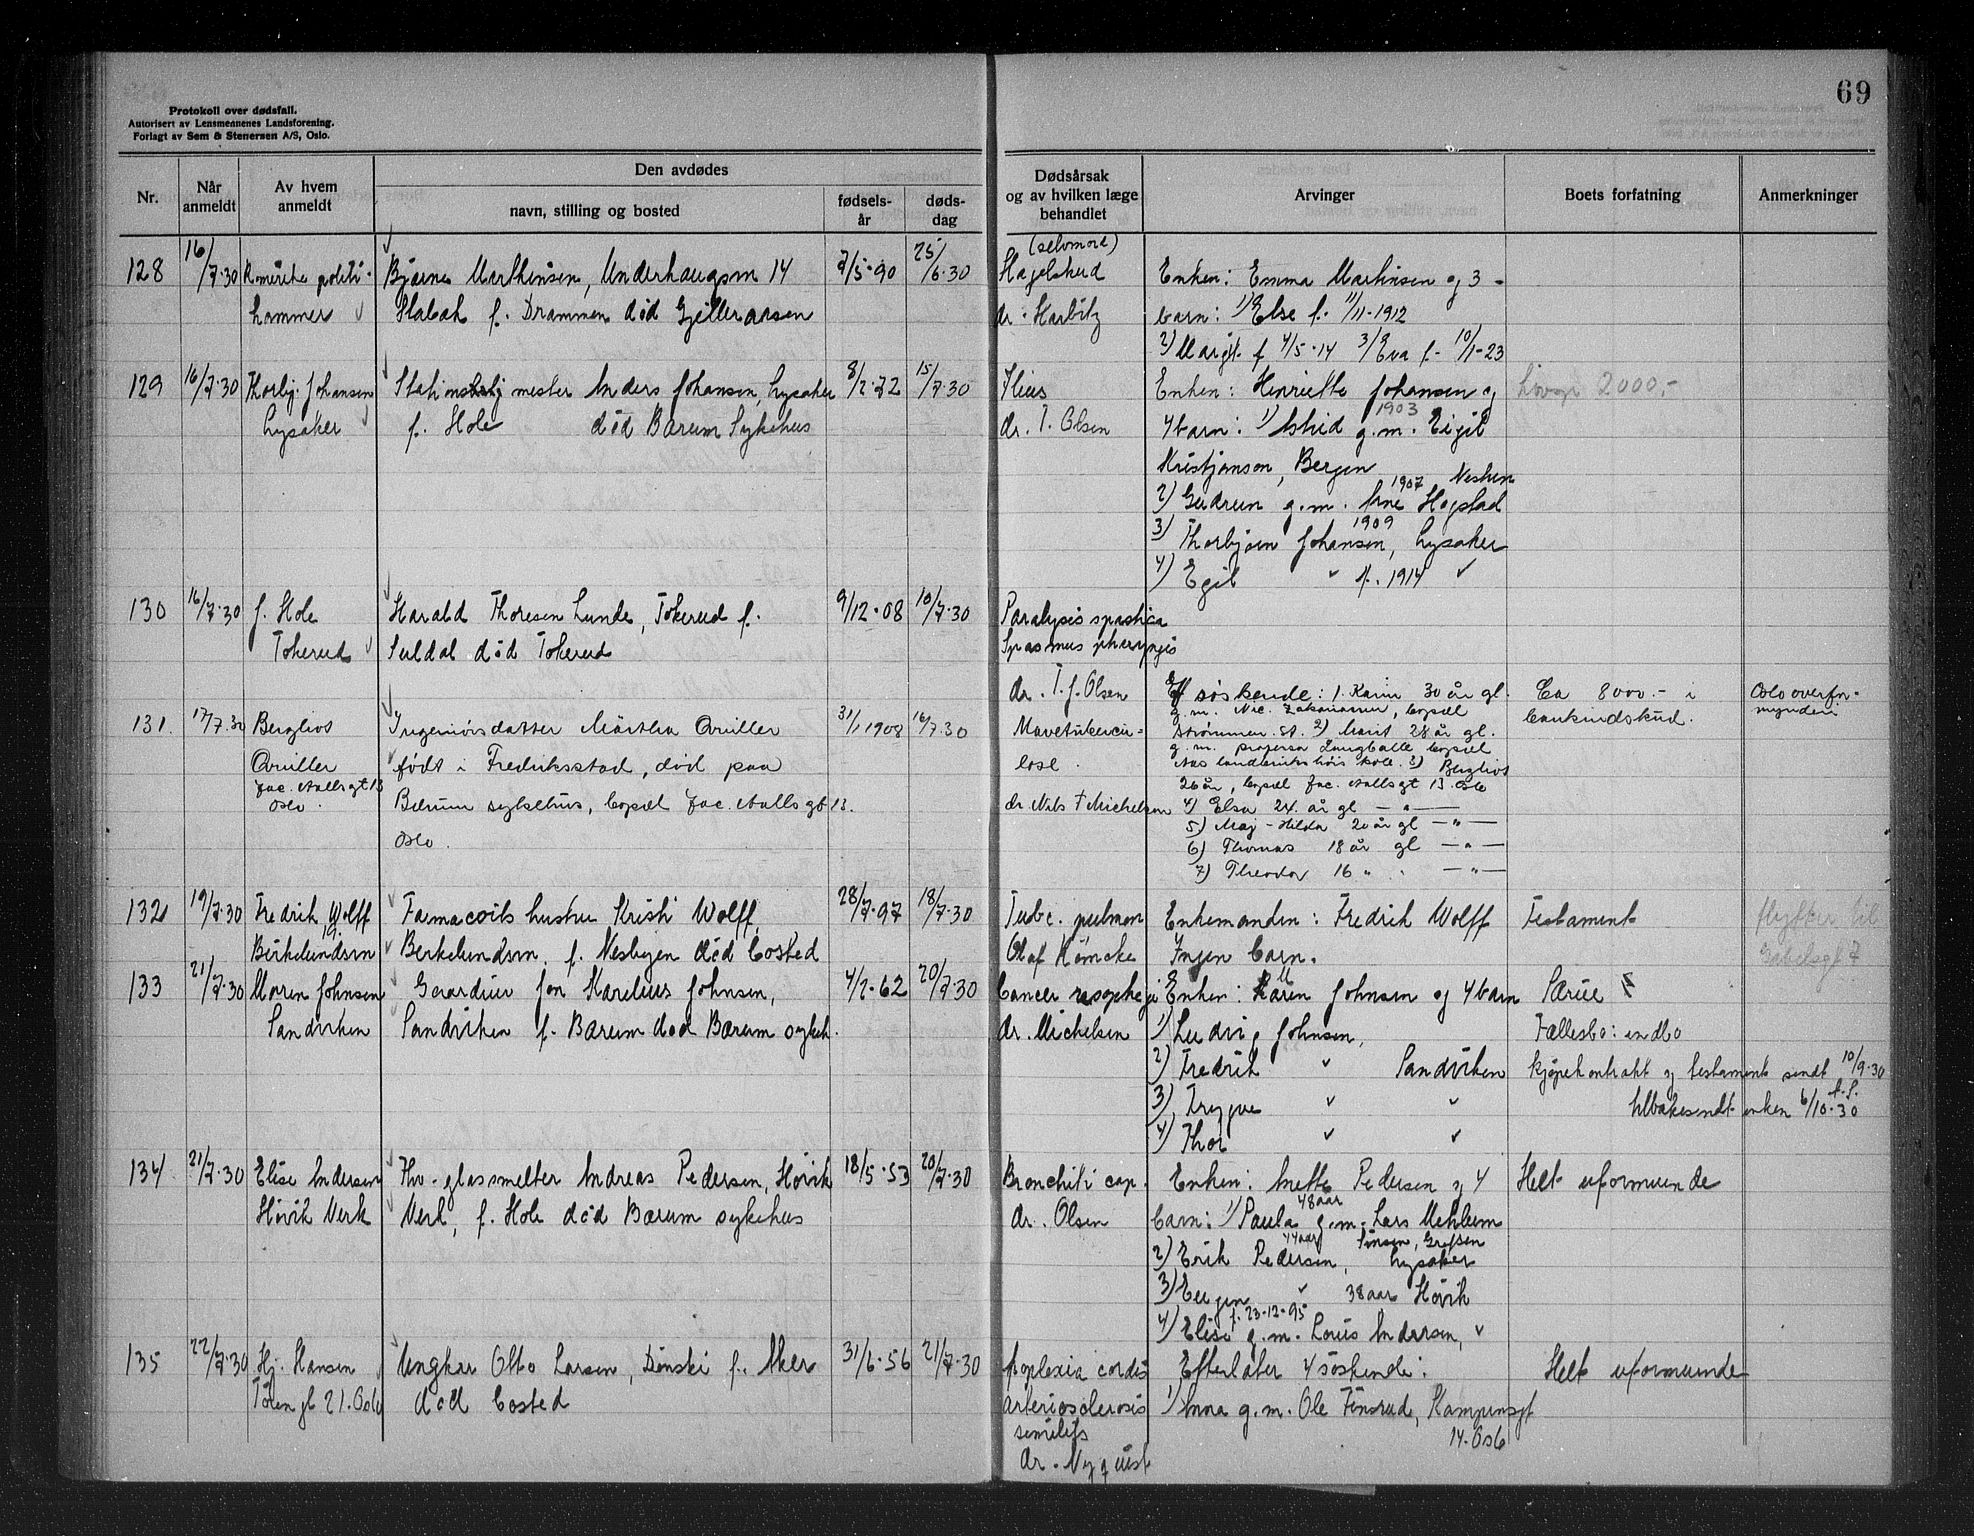 69
Protokoll over dødsfall.
Autorisert av Lensmennenes Landsforening.
Forlagt av Sem & Stenersen A/S, Oslo.
Nr.
Når anmeldt
Av hvem anmeldt
Den avdødes
navn, stilling og bosted
fødsels-år
døds-dag
Dødsårsak og av hvilken læge behandlet
Arvinger
Boets forfatning
Anmerkninger
128 16/7.30 Romerike politi- Bjarne Marthinsen, Underhaugsvn 14 7/5.90 25/6.30
kammer Stabæk f. Drammen død Gjelleraasen
(selvmord)
Haglskud Enken: Emma Martinsen og 3
dr. Harbitz barn: 1) Else f. 11/11-1912
2) Margit f 4/5.14 3) Eva f. 10/1-23
129 16/7.30 Thorbj. Johansen Stations mester Anders Johansen, Lysaker 8/2.72 15/7.30
Lysaker f. Hole død Bærum Sykehus
Ileus Enken: Henriette Johansen og 2000,-
dr. T. Olsen 4 barn: 1) Astrid 1903 g.m. Eigil
Kristjansen, Bergen
2) Gudrun g.m. 1907 Arne Hogstad Nesten
3) Thorbjørn Johansen, 1909 Lysaker
4) Egil " f. 1914 "
130 16/7.30 f. Hole Harald Thoresen Lunde, Tokerud f. 9/12.08 10/7.30
Tokerud Suldal død Tokerud
Paralysis spastica
Spasmus pharyngis
dr. T. J. Olsen
131. 17/7.30 Bergliot Ingeniørsdatter Märtha Qviller 31/1 1908 16/7.30
Qviller født i Fredriksstad, død paa
Jac. Aallsgt 13 Bærum sykehus, bopæl Jac. Aalls gt 13.
Oslo. Oslo.
Mavetubercu-
lose.
dr Nils F Michelsen
7 søskende: 1. Karin 30 år gl. Ca 8000.- i Oslo overfor-
g.m. Nic. Zakariassen, bopæl bankindskud. mynderi
Strømmen. St. 2) Marit 28 år gl.
g.m. professor Langballe bopæl
Aas landbrukshøiskole. 3) Bergliot
26 år, bopæl Jac. Aallsgt 13. Oslo
4) Elsa 24. år gl — " —
5) May-Hilda 20 år gl — " —
6) Thomas 18 år gl — " —
7) Theodor 16 " . — " —
132 19/7.30 Fredrik Wolff Farmacoits hustru Kristi Wolff, 28/7.97 18/7.30
Birkelundsvn 19. Berkelundsvn. f. Nesbyen død bosted
Tubc. pulmon Enkemanden: Fredrik Wolff Testament flytter til
Olaf Römcke Ingen barn. Gabelsgt 7
133 21/7.30 Maren Johnsen Gaardeier Jon Karelius Johnsen, 4/2.62 20/7.30
Sandviken Sandviken f. Bærum død Bærum sykeh.
Cancer Enken: Maren Johnsen og 4 barn Særeie
dr. Michelsen 1) Ludvig Johnsen, Fællesbo: endbo
2) Fredrik " Sandviken kjøpekontrakt og testament sendt 10/9.30
3) Trygve " " tilbakesendt enken 6/10.30
4) Thor " "
134 21/7.30 Elise Andersen Fhv. glassmelter Andreas Pedersen, Høvik 18/5.53 20/7.30
Høvik Verk Verk, f. Hole død Bærum sykehus
Bronchiti cap. Enken: Mette Pedersen og 4 Helt uformuende
dr. Olsen barn: 1) Paula 48 aar g.m. Lars Mehlum
Sinsen, Grefsen
2) Erik Pedersen, 44 aar Lysaker
3) Eugen " 38 aar Høvik
4) Elise f. 23-12-95 g.m. Louis Andersen, "
135 22/7.30 Hj. Hansen Ungkar Otto Larsen, Dønski f. Aker 31/6.56 21/7.30
Tøiengt 21. Oslo død bosted
Apoplexia cordis Efterlater 4 søskende: Helt uformuende
arteriosclerosis 1) Anna g.m. Ole Finsrud, Kampensgt
senilis 14. Oslo
dr. Nyquist